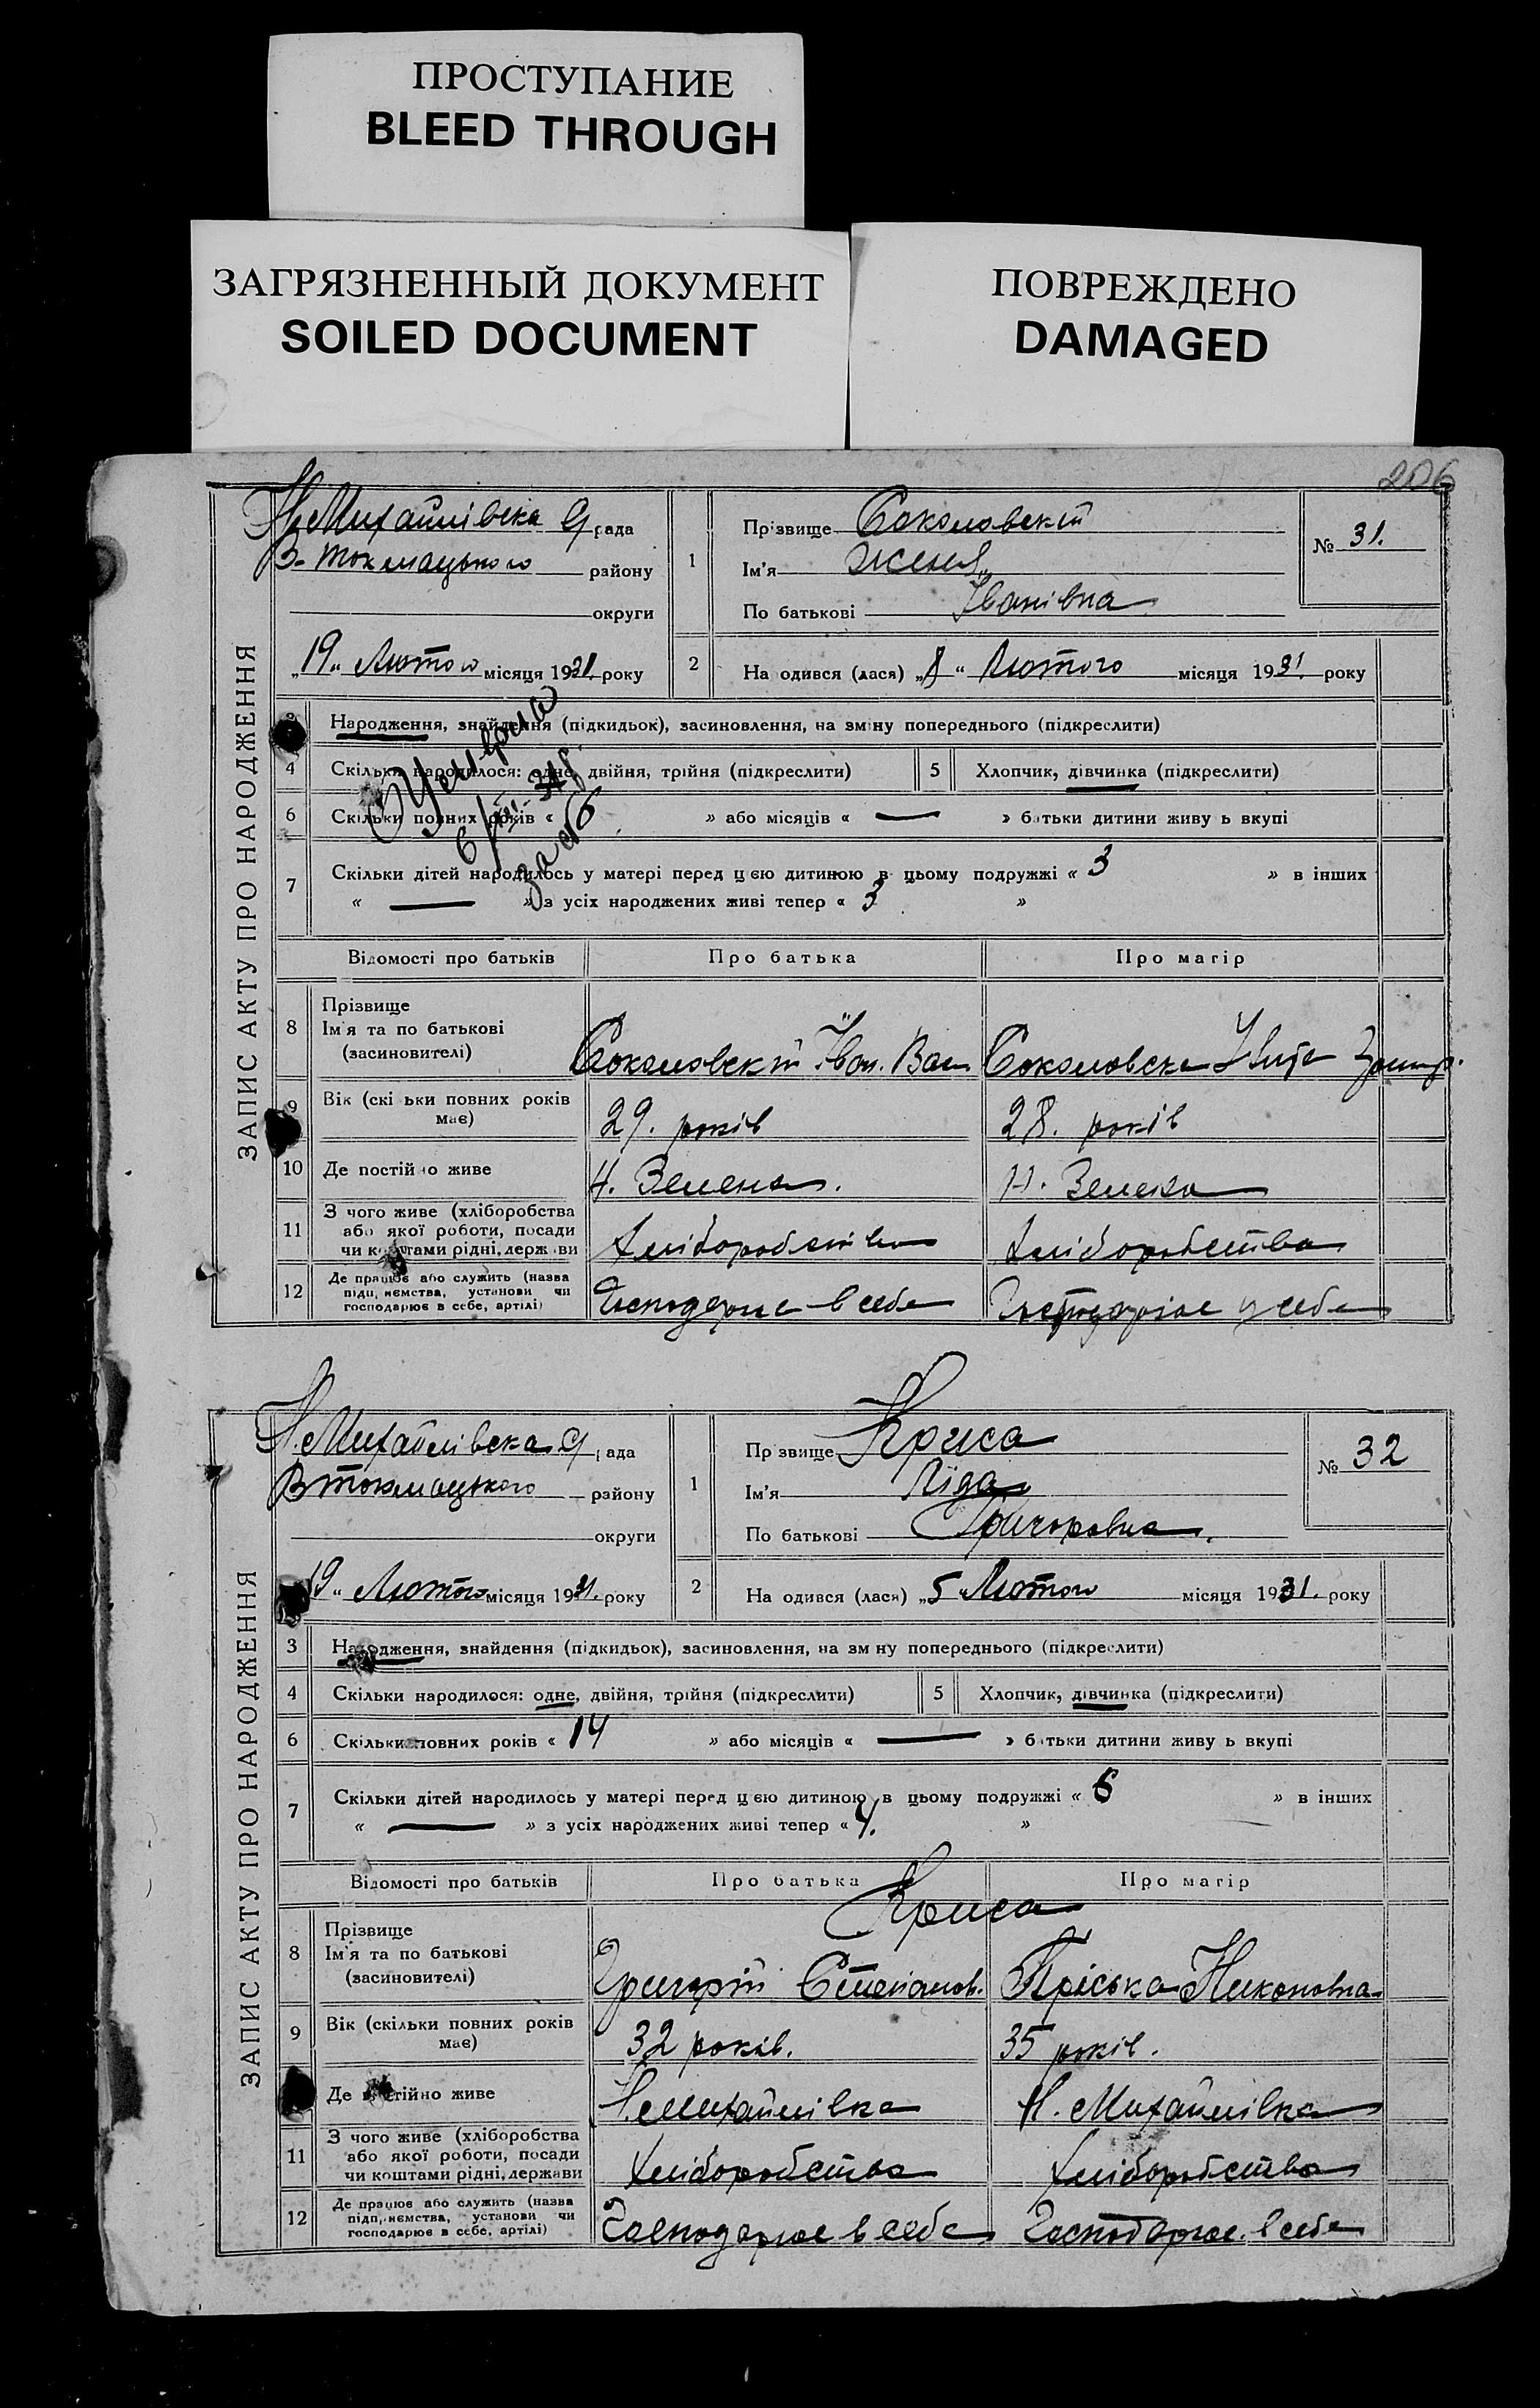 ПРОСТУПАНИЕ
BLEED THROUGH
ЗАГРЯЗНЕННЫЙ ДОКУМЕНТ
SOILED DOCUMENT
ПОВРЕЖДЕНО
DAMAGED
206
ЗАПИС АКТУ ПРО НАРОДЖЕННЯ
Н. Михайлівска с/рада
В-Токмацького району
округи
„19„ Лютого місяця 1931. року
1
Прізвище Соколовскій
Ім'я Женя
По батькові Іванівна
№ 31.
2 На одився (лася) „8“ Лютого місяця 1931. року
Народження, знайдення (підкидьок), засиновлення, на зміну попереднього (підкреслити)
4 Скільки народилося: одне, двійня, трійня (підкреслити) 5 Хлопчик, дівчинка (підкреслити)
6 Скільки повних років « » або місяців « — » батьки дитини живу ь вкупі
7 Скільки дітей народилось у матері перед цєю дитиною в цьому подружжі « 3 » в інших
« — » з усіх народжених живі тепер « 3 »
Відомості про батьків Про батька Про матір
8 Прізвище
Ім'я та по батькові
(засиновителі)
Соколовскій Іван. Вас Соколовска
9 Вік (скі ьки повних років має) 29. років 28. років
10 Де постійно живе Н. Зелена. Н. Зелена
11 З чого живе (хліборобства або якої роботи, посади чи коштами рідні, держави Хліборобства Хліборобства
12 Де працює або служить (назва підп, нємства, установи чи господарює в себе, артілі) Господарює в себе Господарює у себе
ЗАПИС АКТУ ПРО НАРОДЖЕННЯ
Н. Михайлівска с/рада
В Токмацького району
округи
19„ Лютого місяця 1931. року
1
Пр звище Криса
Ім'я Ліда
По батькові Григоровна.
№ 32
2 На одився (лася) „5„ Лютого місяця 1931. року
3 Народження, знайдення (підкидьок), засиновлення, на зм ну попереднього (підкреслити)
4 Скільки народилося: одне, двійня, трійня (підкреслити) 5 Хлопчик, дівчинка (підкреслити)
6 Скільки повних років « 14 » або місяців « — » батьки дитини живу ь вкупі
7 Скільки дітей народилось у матері перед цєю дитиною в цьому подружжі « 6 » в інших
« — » з усіх народжених живі тепер « 4. »
Відомості про батьків Про батька Про матір
Криса
8 Прізвище
Ім'я та по батькові
(засиновителі)
Григорій Степанов. Пріська Никоновна
9 Вік (скільки повних років має) 32 років. 35 років.
Де постійно живе Н. Михайлівка Н. Михайлівка
11 З чого живе (хліборобства або якої роботи, посади чи коштами рідні, держави Хліборобства Хліборобства
12 Де працює або служить (назва підп, нємства, установи чи господарює в себе, артілі) Господарює в себе Господарює в себе